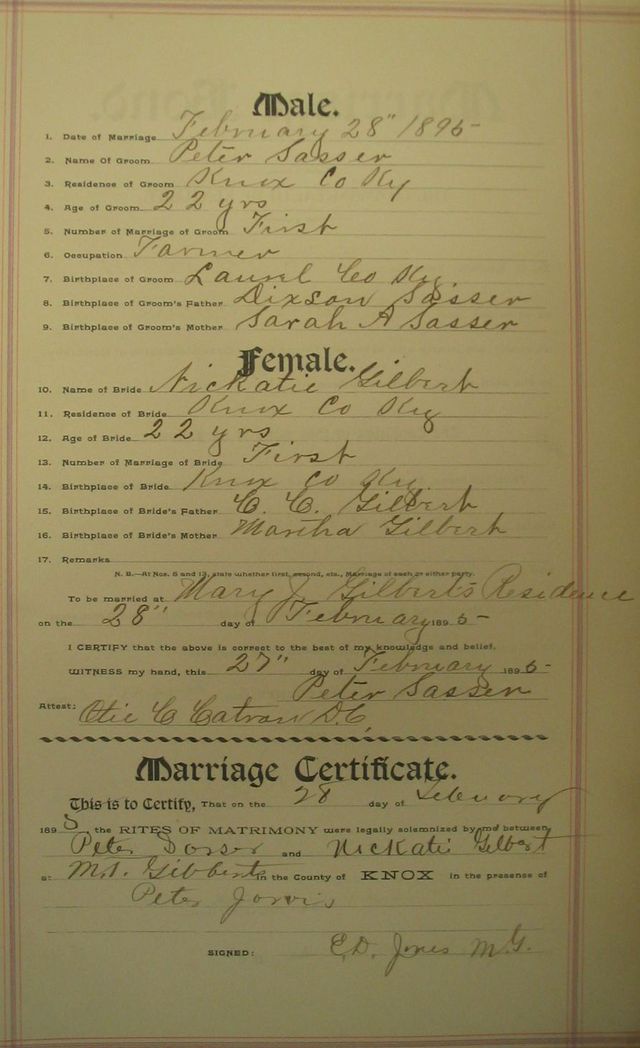 Male.
1. Date of Marriage February 28" 1895
2. Name Of Groom Peter Sasser
3. Residence of Groom Knox Co Ky
4. Age of Groom 22 yrs
5. Number of Marriage of Groom First
6. Occupation Farmer
7. Birthplace of Groom Laurel Co Ky.
8. Birthplace of Groom's Father Dixson Sasser
9. Birthplace of Groom's Mother Sarah A Sasser
Female.
10. Name of Bride Nickatie Gilbert
11. Residence of Bride Knox Co Ky
12. Age of Bride 22 yrs
13. Number of Marriage of Bride First
14. Birthplace of Bride Knox Co Ky.
15. Birthplace of Bride's Father C. C. Gilbert
16. Birthplace of Bride's Mother Martha Gilbert
17. Remarks
N. B.—At Nos. 5 and 13, state whether first, second, etc., Marriage of each or either party.
To be married at Mary J Gilberts Residence
on the 28" day of February 1895
I CERTIFY that the above is correct to the best of my knowledge and belief.
WITNESS my hand, this 27" day of February 1895
Peter Sasser
Attest: Otie C Catron D.C.
Marriage Certificate.
This is to Certify, That on the 28 day of Febuary
1895, the RITES OF MATRIMONY were legally solemnized by me between
Peter and Nickatie Gilbert
at in the County of KNOX in the presence of
Peter Jarvis
SIGNED: E.D. Jones M.G.